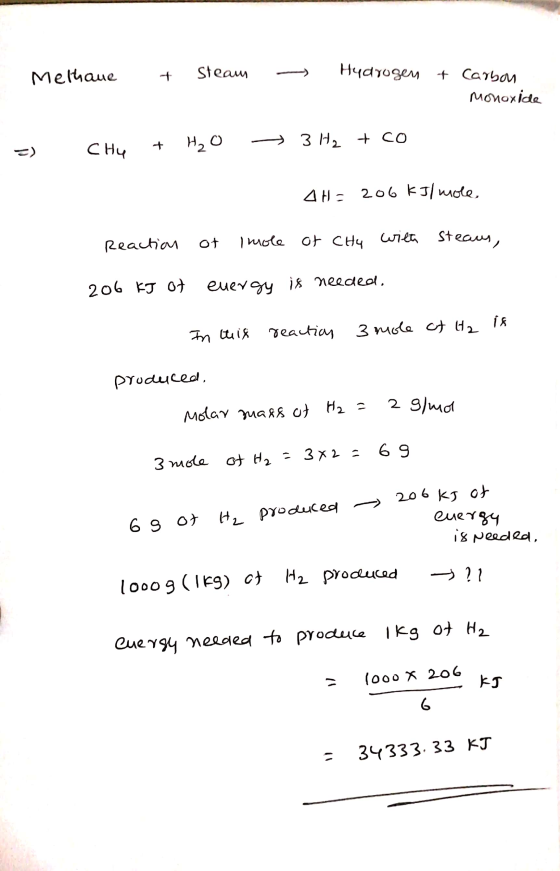 Methane + Steam → Hydrogen + Carbon
Monoxide
=) CH4 + H2O → 3 H2 + CO
ΔH = 206 KJ/mole.
Reaction of 1mole of CH4 with steam,
206 KJ of energy is needed.
In this reaction 3 mole of H2 is
produced.
Molar mass of H2 = 2 g/mol
3 mole of H2 = 3×2 = 6 g
6 g of H2 produced → 206 KJ of
energy
is Needed.
1000 g (1Kg) of H2 produced → ??
energy needed to produce 1Kg of H2
= 1000 × 206 KJ
6
= 34333.33 KJ